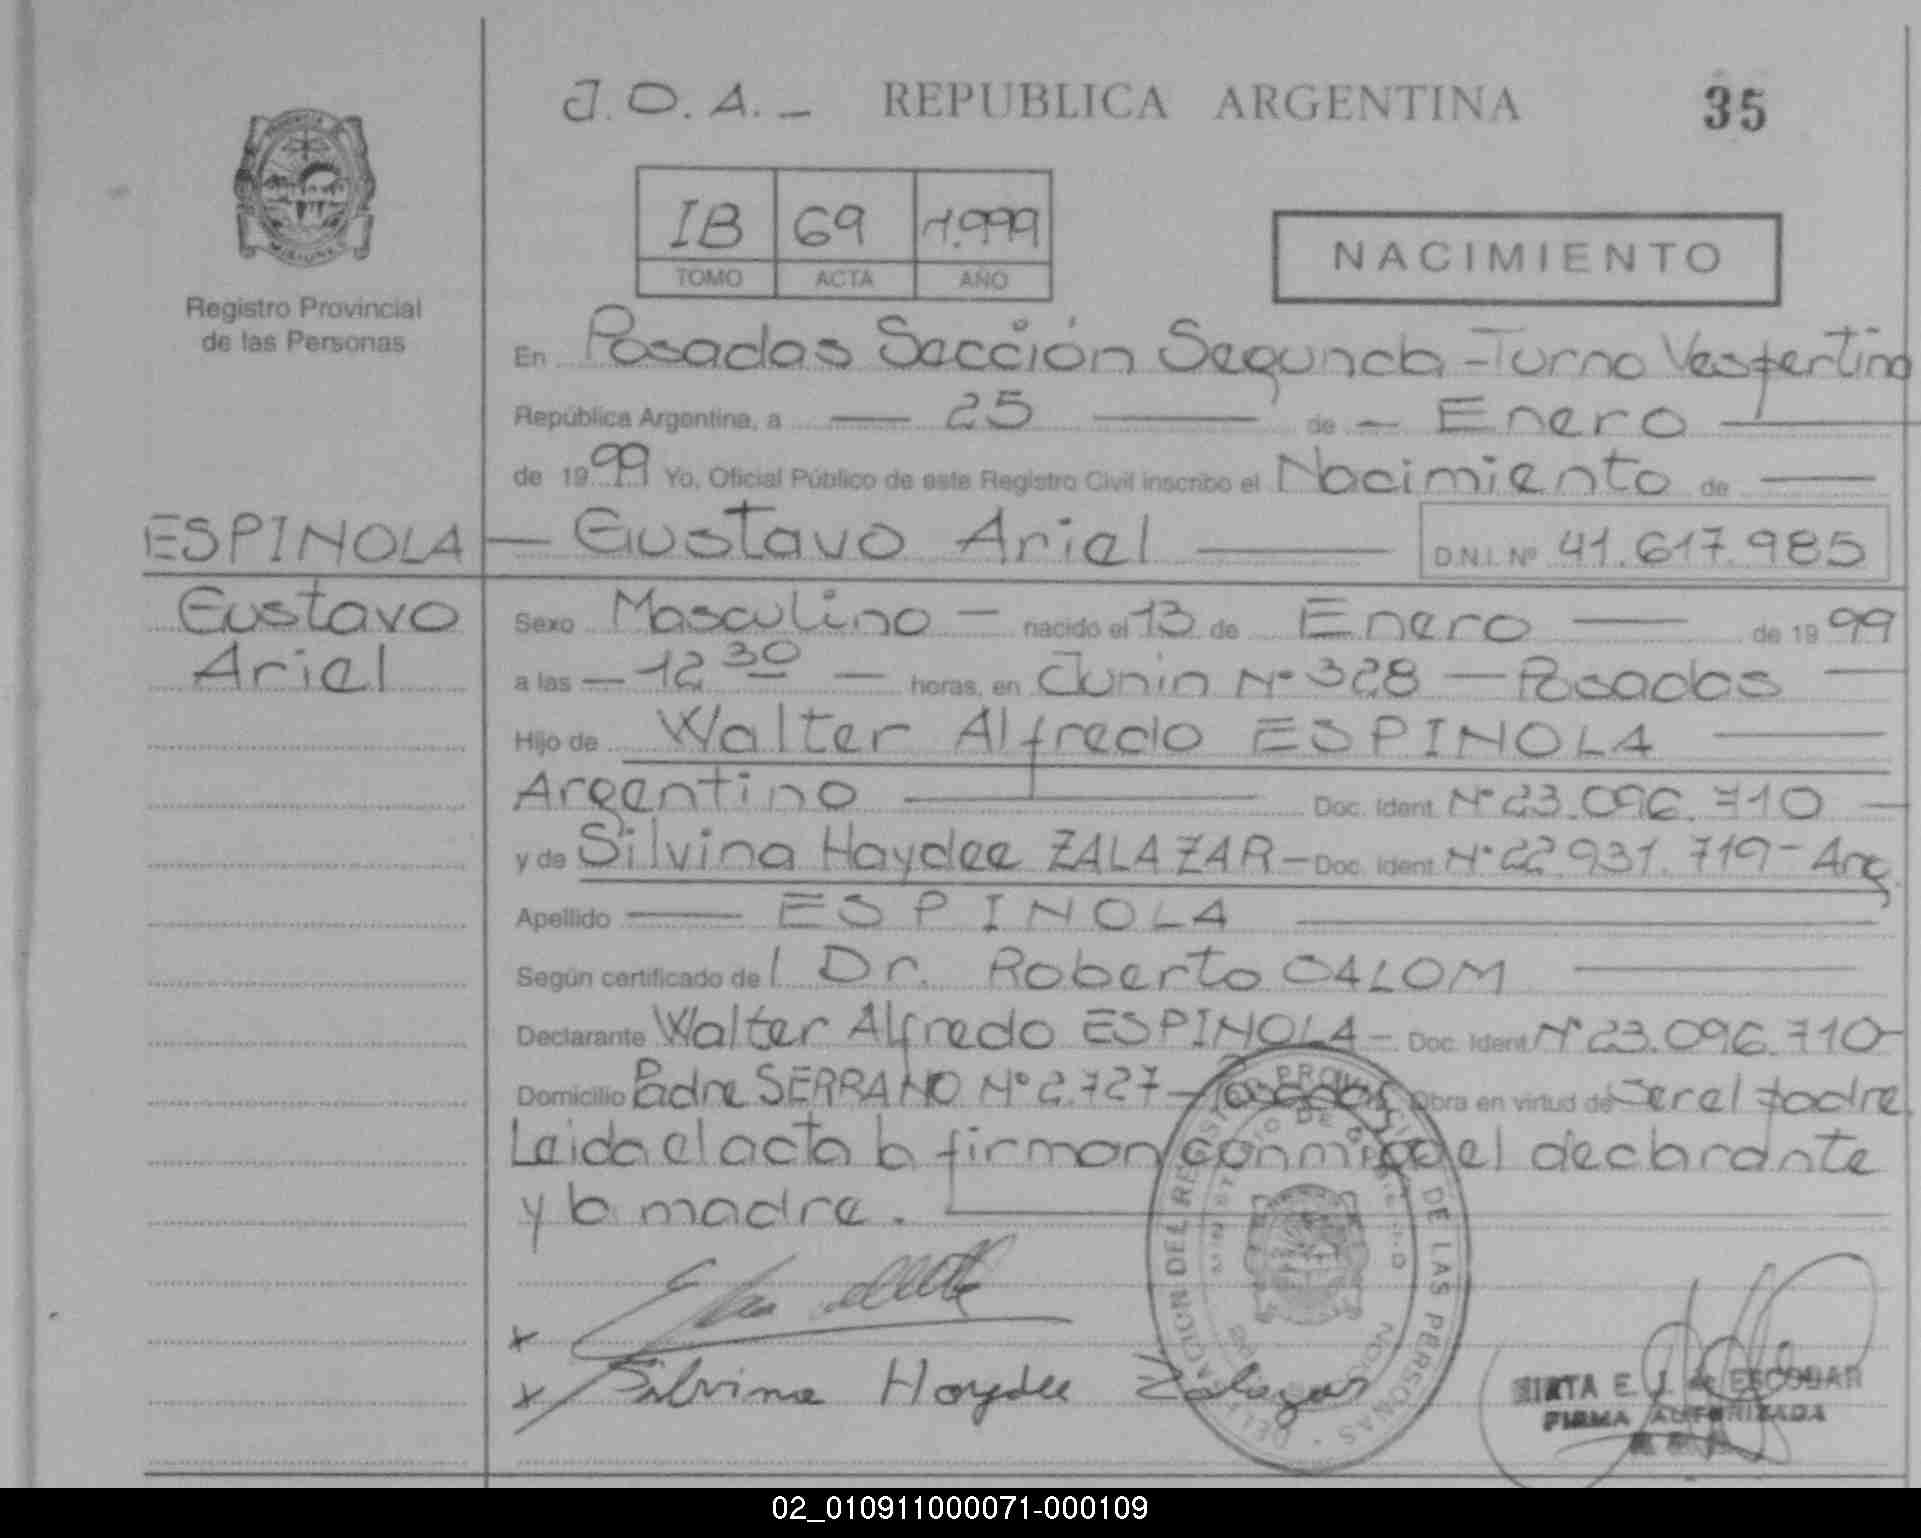 J.O.A. - REPUBLICA ARGENTINA 35
IB 69 1.999
TOMO ACTA AÑO
NACIMIENTO
Registro Provincial
de las Personas
En Posadas Sección Segunda - Turno Vespertino
República Argentina, a — 25 — de — Enero —
de 1999 Yo, Oficial Público de este Registro Civil inscribo el Nacimiento de —
ESPINOLA — Gustavo Ariel — D.N.I. Nº 41.617.985
Gustavo
Ariel
Sexo Masculino — nacido el 13 de Enero — de 1999
a las — 12 30 — horas, en Junin Nº 328 — Posadas —
Hijo de Walter Alfredo ESPINOLA —
Argentino — Doc. Ident. Nº 23.096.710 —
y de Silvina Haydee ZALAZAR — Doc. Ident. Nº 22.931.719 - Arg.
Apellido — ESPINOLA —
Según certificado del Dr. Roberto CALOM —
Declarante Walter Alfredo ESPINOLA — Doc. Ident. Nº 23.096.710 -
Domicilio Padre SERRANO Nº 2.727 — Posadas Obra en virtud de Ser el padre.
Leida el acta la firman conmigo el declarante
y la madre.
x
x Silvina Haydee Zalazar
DEL REGISTRO PROVINCIAL DE LAS PERSONAS
MINISTERIO DE GOBIERNO
MIRTA E. J. de ESCOBAR
FIRMA AUTORIZADA
02_010911000071-000109